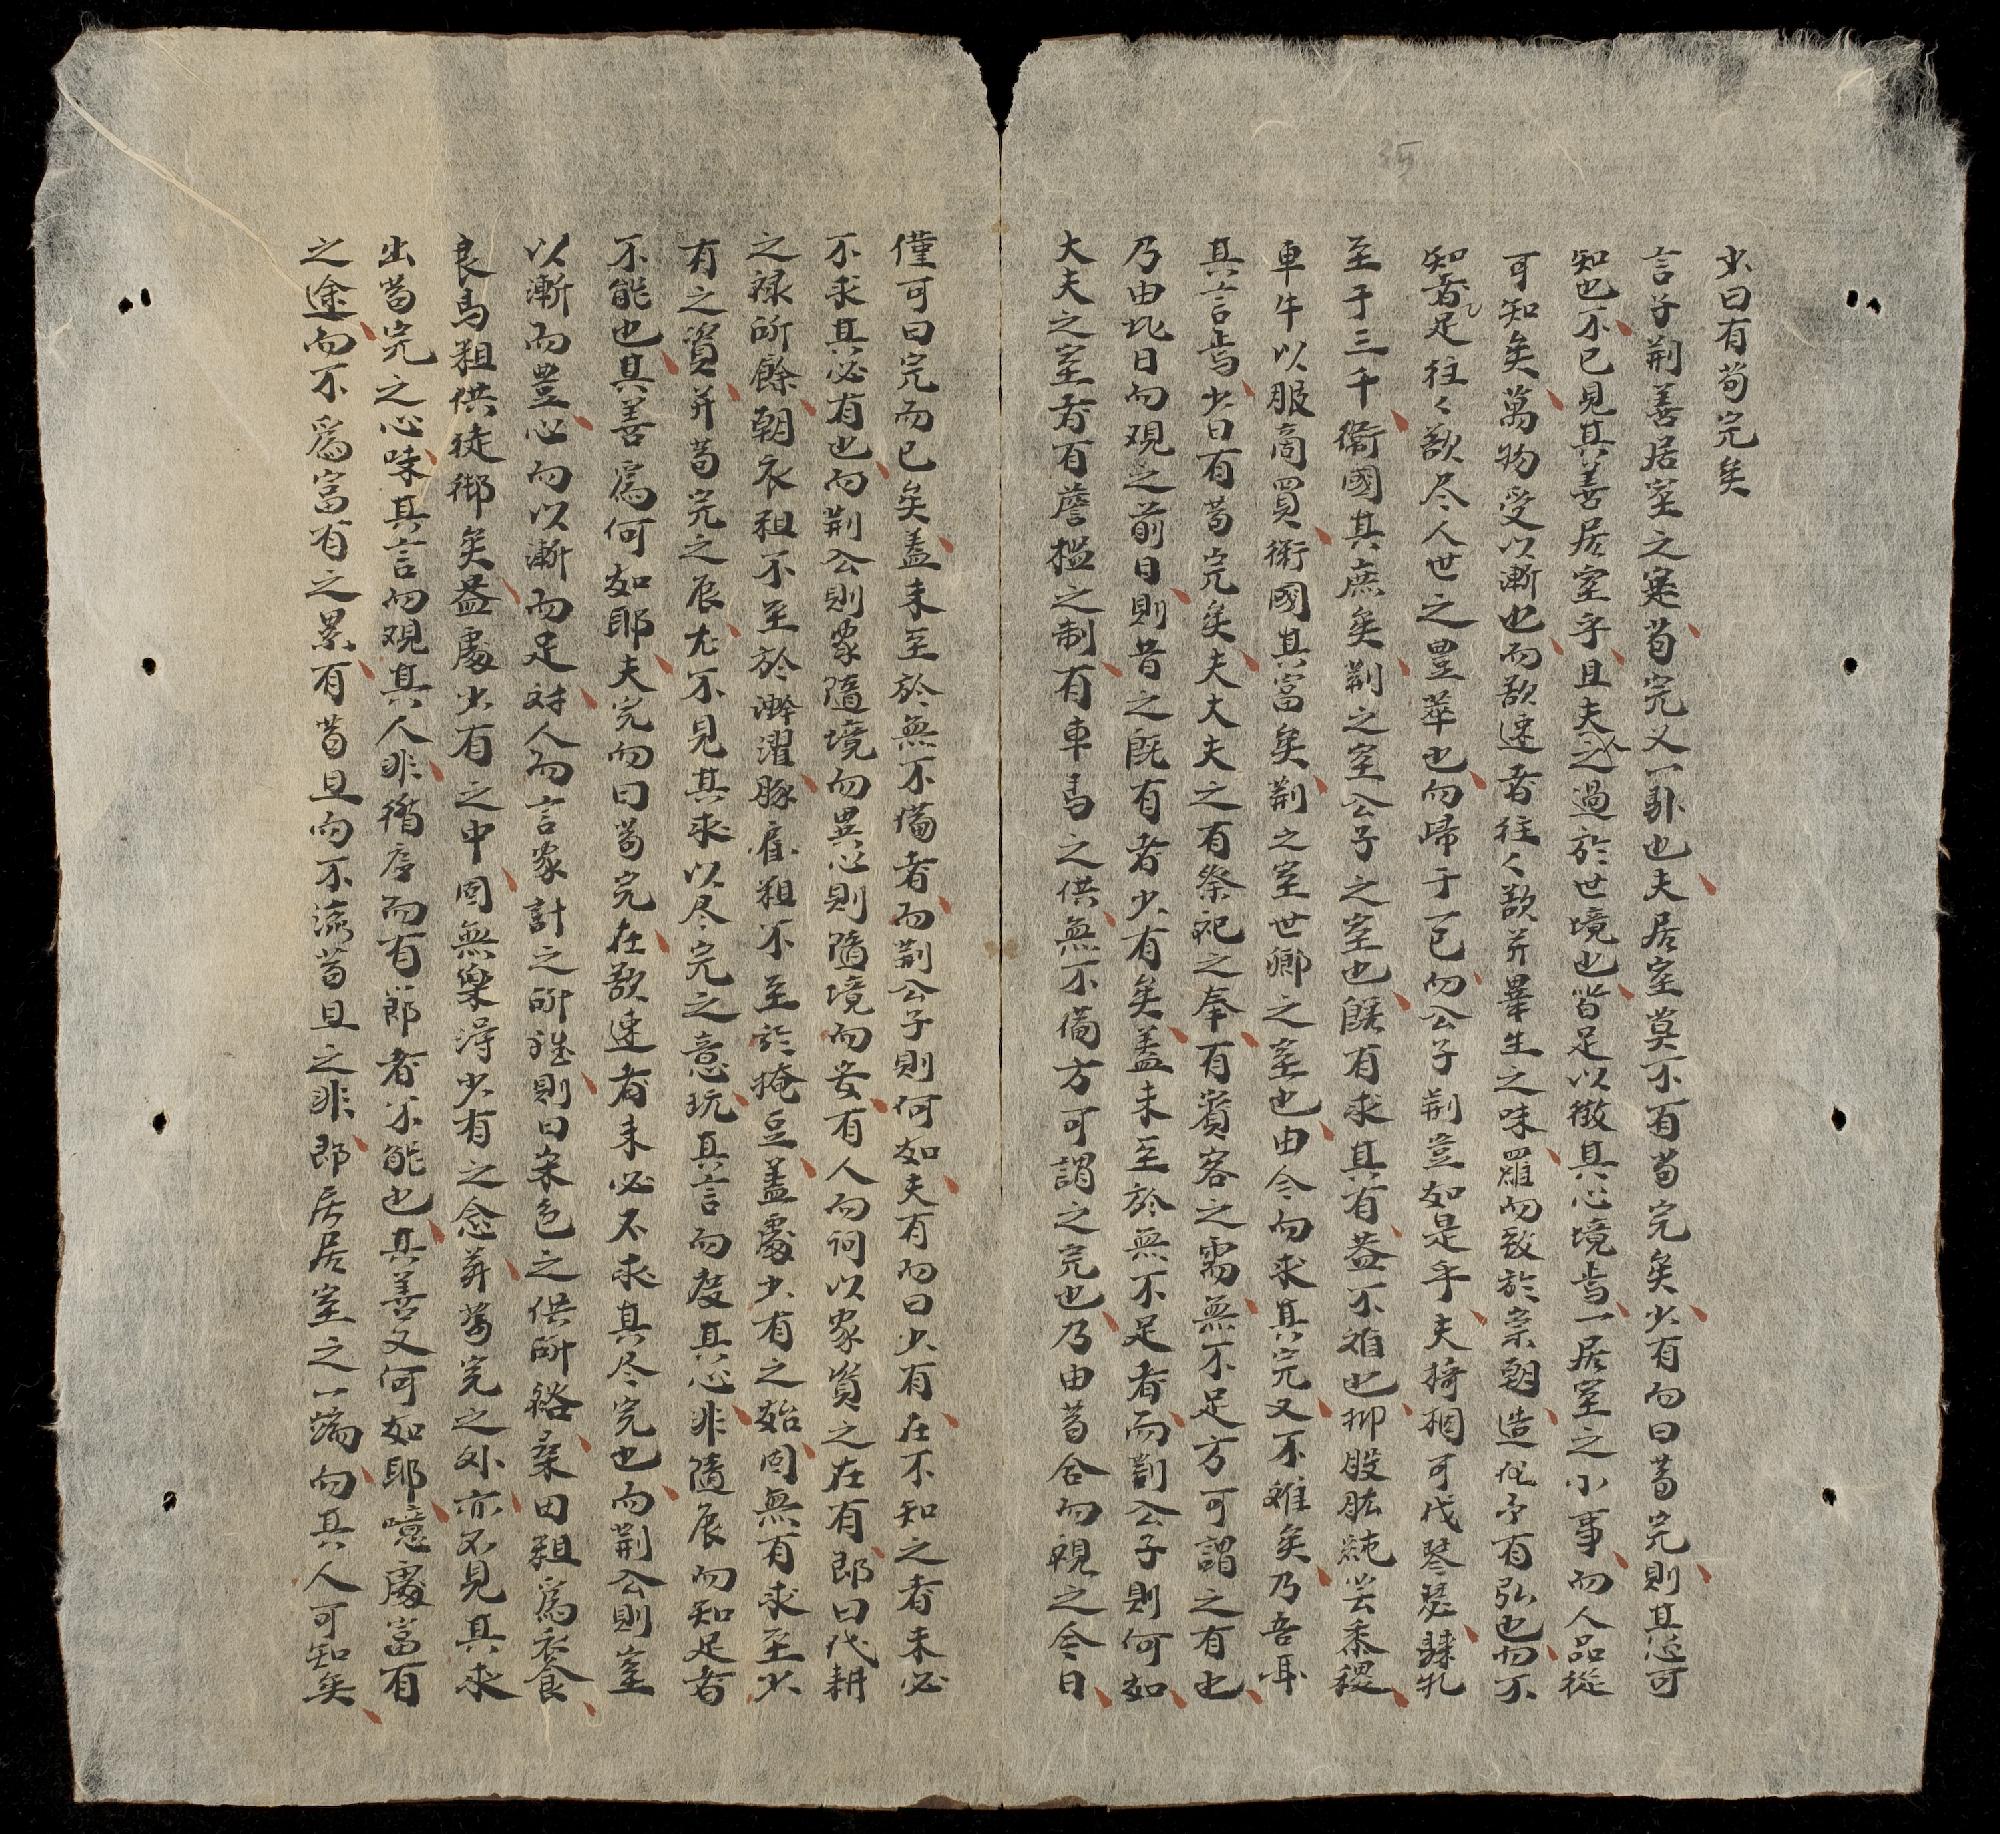 少曰有苟完矣
言子荆善居室之寔苟完又一郼也夫居室莫不有苟完矣少有而曰苟完則其心可
知也不已見其善居室乎且夫之過於世境也皆足以徵其心境焉一居室之小事而人品從
可知矣萬物受以漸也而欲速者往々欲并畢生之味羅而致於崇朝造化予有弘也而不
知者足往々欲尽人世之豊萃也而帰于一己而公子荆豈如是乎夫椅桐可伐琴瑟騋牝
至于三千衛國其庶矣荆之室公子之室也既有求其有益不难也抑股肱純芸黍稷
車牛以服商買衛國其富矣荆之室世卿之室也由今而求其完又不难矣乃吾耳
其言焉少曰有苟完矣夫大夫之有祭祀之奉有賓客之需無不足方可謂之有也
乃由北日而覌之前日則昔之既有者少有矣盖未至於無不足者而荆公子則何如
大夫之室者有簷楹之制有車馬之供無不備方可謂之完也乃由苟合而視之今日
僅可曰完而已矣盖未至於無不備者而荆公子則何如夫有而曰少有在不知之者未必
不求其必有也而荆公則家隨境而異心則隨境而安有人而詞以家資之在有郎曰代耕
之禄所餘朝衣粗不至於澣濯豚肩粗不至於掩豆盖處少有之始固無有求至少
有之資并苟完之辰尤不見其求以尽完之意玩其言而度其心非隨辰而知足者
不能也其善爲何如耶夫完而曰苟完在欲速者未必不求其尽完也而荆公則室
以漸而豊心而以漸而足对人而言家計之所雖則曰宋邑之供所裕桑田粗爲衣食
良馬粗供徒御矣盖處少有之中固無樂淂少有之念并苟完之外亦不見其求
出苟完之心味其言而覌其人非循序而有節者不能也其善又何如耶噫處富有
之途而不爲富有之累有苟且而不流苟且之非郎居居室之一端而其人可知矣